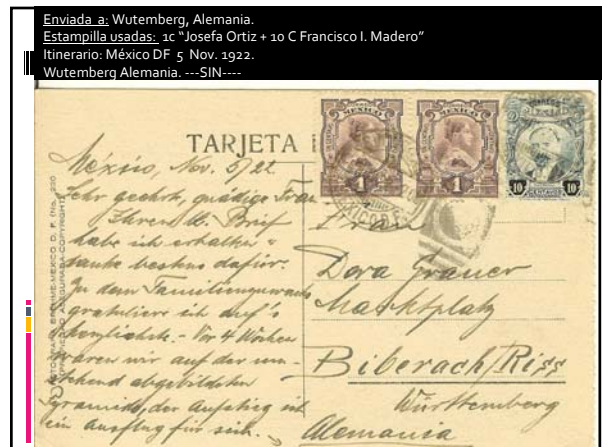 Enviada a: Wutemberg, Alemania.
Estampilla usadas: 1c “Josefa Ortiz + 10 C Francisco I. Madero”
Itinerario: México DF 5 Nov. 1922.
Wutemberg Alemania. ---SIN----
TARJETA
MEXICO
1
MEXICO
1
10
CENTAVOS
10
MEXICO D.F.
México, Nov. 5/22
Sehr geehrte, gnädige Frau
Ihren Brief
habe ich erhalten u
danke bestens dafür.
Zu dem Familienzuwachs
gratuliere ich auf's
herzlichste. - Vor 4 Wochen
waren wir auf der um-
stehend abgebildeten
Pyramide, der Aufstieg ist
ein Ausflug für sich.
Frau
Dora Grauer
Marktplatz
Biberach/Riss
Württemberg
Alemania
MEXICO D. F.
ASEGURADA-COPYRIGHT